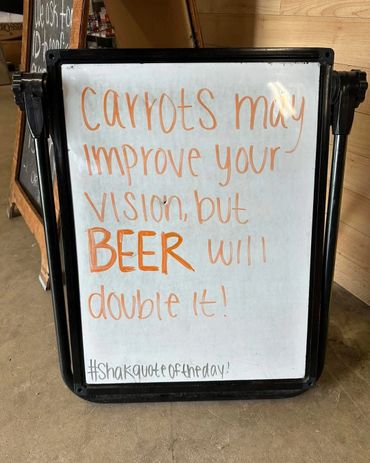 carrots may
improve your
vision, but
BEER will
double it!
#shakquoteoftheday!